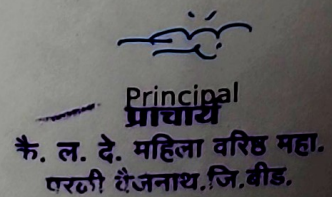 Principal
प्राचार्य
कै. ल. दे. महिला वरिष्ठ महा.
परळी वैजनाथ.जि.बीड.